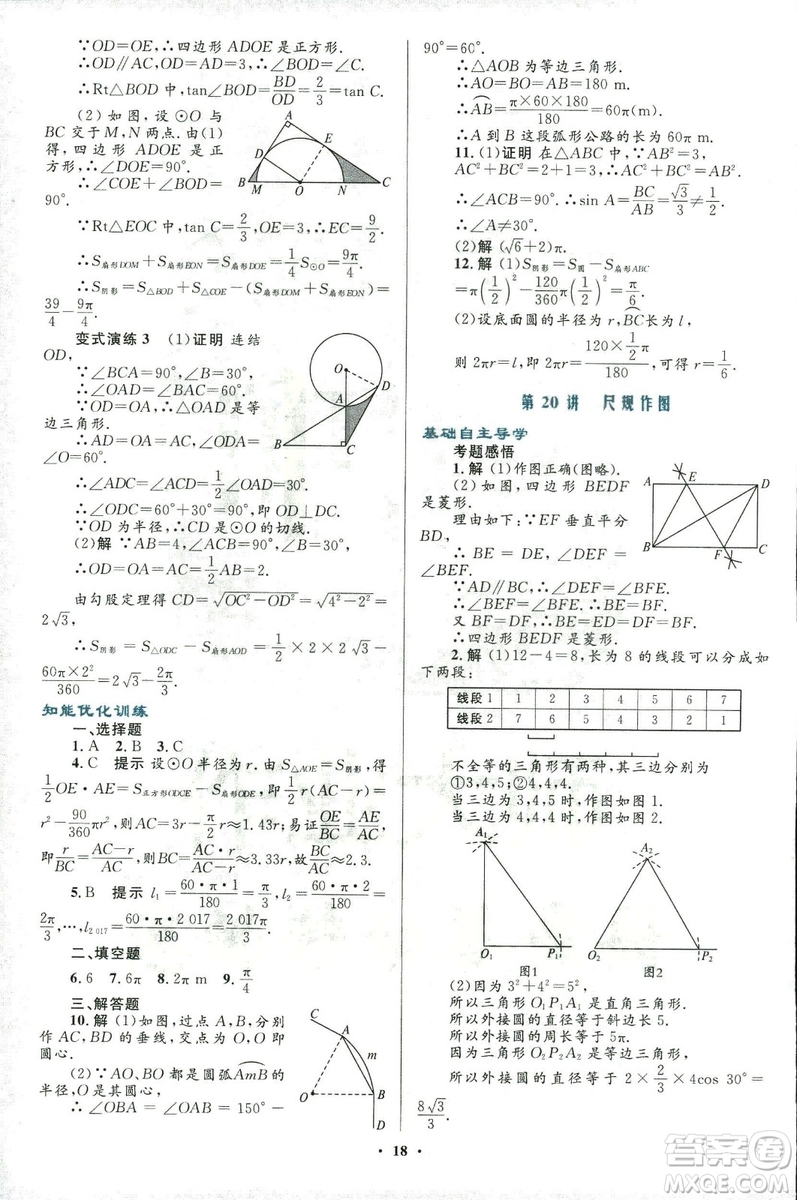 ∵OD=OE,∴四边形 ADOE 是正方形.
∴OD∥AC,OD=AD=3,∴∠BOD=∠C.
∴Rt△BOD 中,tan∠BOD=BD/OD=2/3=tan C.
(2)如图,设⊙O 与
BC 交于 M,N 两点.由(1)
得,四边形 ADOE 是正
方形,∴∠DOE=90°.
∴∠COE+∠BOD=
90°.
A
D
E
B
M
O
N
C
∵Rt△EOC 中,tan C=2/3,OE=3,∴EC=9/2.
∴S扇形DOM+S扇形EON=S扇形DOE=1/4 S⊙O=9π/4.
∴S阴影=S△BOD+S△COE-(S扇形DOM+S扇形EON)=
39/4-9π/4.
变式演练 3 (1)证明 连结
OD,
∵∠BCA=90°,∠B=30°,
∴∠OAD=∠BAC=60°.
∵OD=OA,∴△OAD 是等
边三角形.
∴AD=OA=AC,∠ODA=
∠O=60°.
O
D
A
B
C
∴∠ADC=∠ACD=1/2∠OAD=30°.
∴∠ODC=60°+30°=90°,即 OD⊥DC.
∵OD 为半径,∴CD 是⊙O 的切线.
(2)解 ∵AB=4,∠ACB=90°,∠B=30°,
∴OD=OA=AC=1/2AB=2.
由勾股定理得 CD=√(OC²-OD²)=√(4²-2²)=
2√3,
∴S阴影=S△ODC-S扇形AOD=1/2×2×2√3-
60π×2²/360=2√3-2π/3.
知能优化训练
一、选择题
1.A 2.B 3.C
4.C 提示 设⊙O 半径为 r.由 S△AOE=S阴影,得
1/2 OE·AE=S正方形ODCE-S扇形ODE,即 1/2 r(AC-r)=
r²-90/360πr²,所以 AC=3r-π/2 r≈1.43r;易证OE/BC=AE/AC,
即r/BC=(AC-r)/AC,所以 BC=AC·r/(AC-r)≈3.33r.故BC/AC≈2.3.
5.B 提示 l₁=60·π·1/180=π/3,l₂=60·π·2/180=
2π/3,…,l₂₀₁₇=60·π·2 017/180=2 017π/3.
二、填空题
6.6 7.6π 8.2π m 9.π/4
三、解答题
10.解 (1)如图,过点 A,B 分别
作 AC,BD 的垂线,交于点 O,O 即
圆心.
(2)∵AO、BO 都是圆弧AmB的
半径,O 是其圆心,
∴∠OBA=∠OAB=150°-
C
A
m
O
B
D
90°=60°.
∴△AOB 为等边三角形.
∴AO=BO=AB=180 m.
∴AB=π×60×180/180=60π(m).
∴A 到 B 这段弧形公路的长为 60π m.
11.(1)证明 在△ABC 中,∵AB²=3,
AC²+BC²=2+1=3,∴AC²+BC²=AB².
∴∠ACB=90°.∴sin A=BC/AB=√3/3≠1/2.
∴∠A≠30°.
(2)解 (√6+2)π.
12.解 (1)S阴影=S圆-S扇形ABC
=π(1/2)²-120/360π(1/2)²=π/6.
(2)设底面圆的半径为 r,BC长为 l,
则 2πr=l,即 2πr=120×1/2π/180,可得 r=1/6.
第 20 讲 尺规作图
基础自主导学
考题感悟
1.解 (1)作图正确(图略).
(2)如图,四边形 BEDF
是菱形.
理由如下:∵EF 垂直平分
BD,
∴BE=DE,∠DEF=
∠BEF.
A
E
D
B
F
C
∵AD∥BC,∴∠DEF=∠BFE.
∴∠BEF=∠BFE.∴BE=BF.
又 BF=DF,∴BE=ED=DF=BF.
∴四边形 BEDF 是菱形.
2.解 (1)12-4=8,长为 8 的线段可以分成如
下两段:
线段 1 1 2 3 4 5 6 7
线段 2 7 6 5 4 3 2 1
不全等的三角形有两种,其三边分别为
①3,4,5;②4,4,4.
当三边为 3,4,5 时,作图如图 1.
当三边为 4,4,4 时,作图如图 2.
A₁
O₁
P₁
图1
A₂
O₂
P₂
图2
(2)因为 3²+4²=5²,
所以三角形 O₁P₁A₁ 是直角三角形.
所以外接圆的直径等于斜边长 5.
所以外接圆的周长等于 5π.
因为三角形 O₂P₂A₂ 是等边三角形,
所以外接圆的直径等于 2×2/3×4cos 30°=
8√3/3.
· 18 ·
答案圈
MXQE.COM